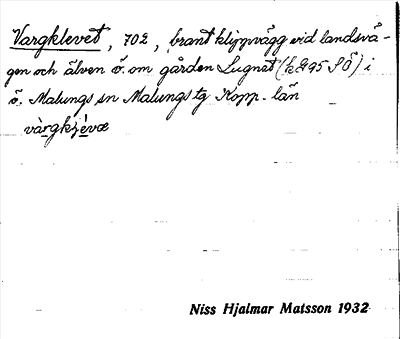 Vargklevet, 702, brant klippvägg vid landsvä-
gen och älven ö. om gården Lugnet (k 95 SÖ) i
ö. Malungs sn Malungs tg Kopp. län
vàrgkjévæ
Niss Hjalmar Matsson 1932